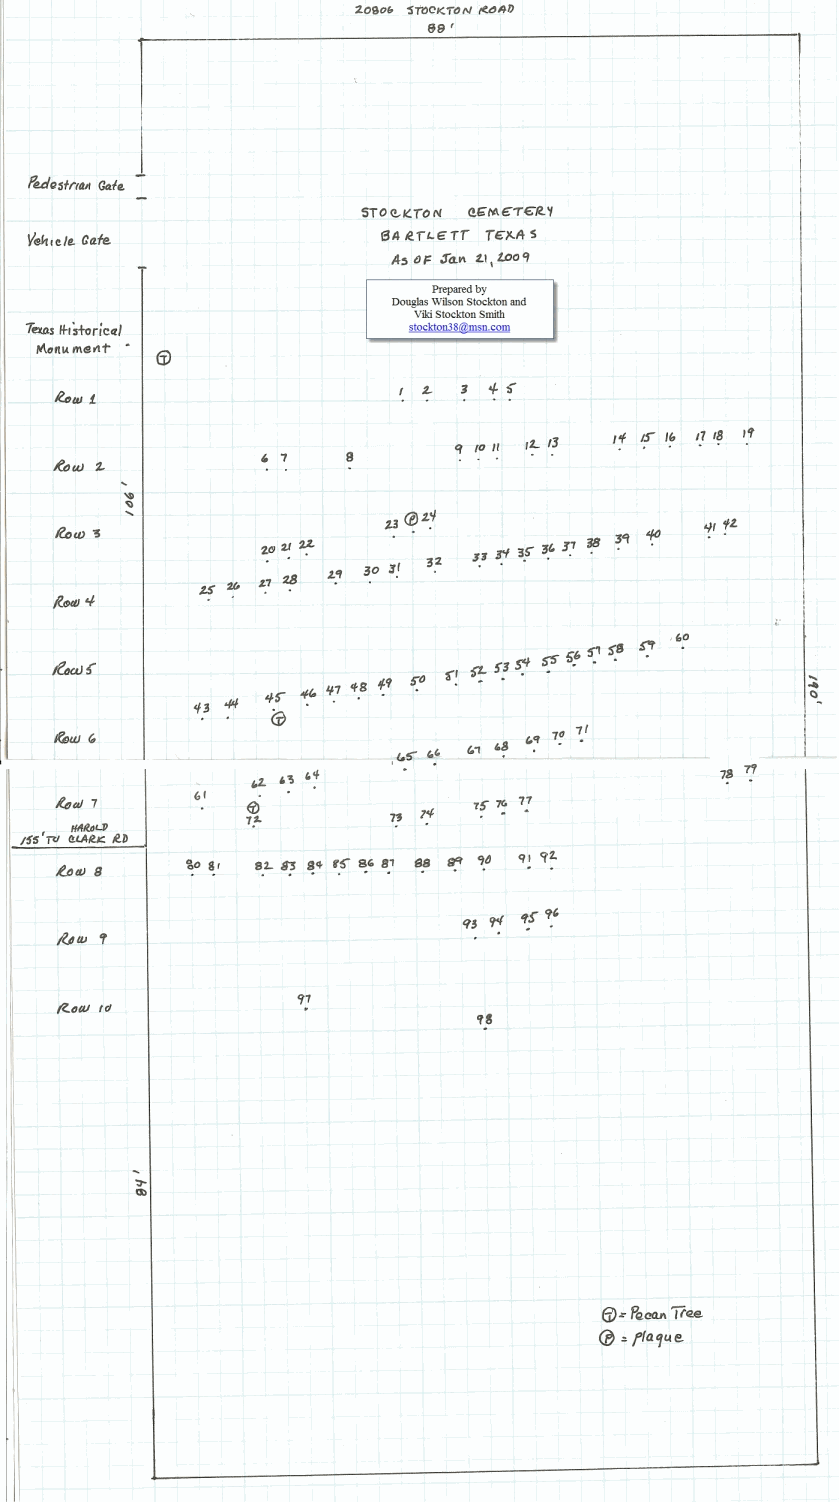 20806 STOCKTON ROAD
88'
Pedestrian Gate
STOCKTON CEMETERY
Vehicle Gate
BARTLETT TEXAS
AS OF Jan 21, 2009
Prepared by
Douglas Wilson Stockton and
Viki Stockton Smith
stockton38@msn.com
Texas Historical
Monument
T
Row 1
1 2 3 4 5
Row 2
6 7 8 9 10 11 12 13 14 15 16 17 18 19
106'
Row 3
20 21 22 23 P 24
41 42
Row 4
25 26 27 28 29 30 31 32 33 34 35 36 37 38 39 40
Row 5
43 44 45 46 47 48 49 50 51 52 53 54 55 56 57 58 59 60
T
190'
Row 6
65 66 67 68 69 70 71
61 62 63 64
78 79
Row 7
T
72 73 74 75 76 77
HAROLD
155' TO CLARK RD
Row 8
80 81 82 83 84 85 86 87 88 89 90 91 92
Row 9
93 94 95 96
Row 10
97
98
84'
T = Pecan Tree
P = Plaque